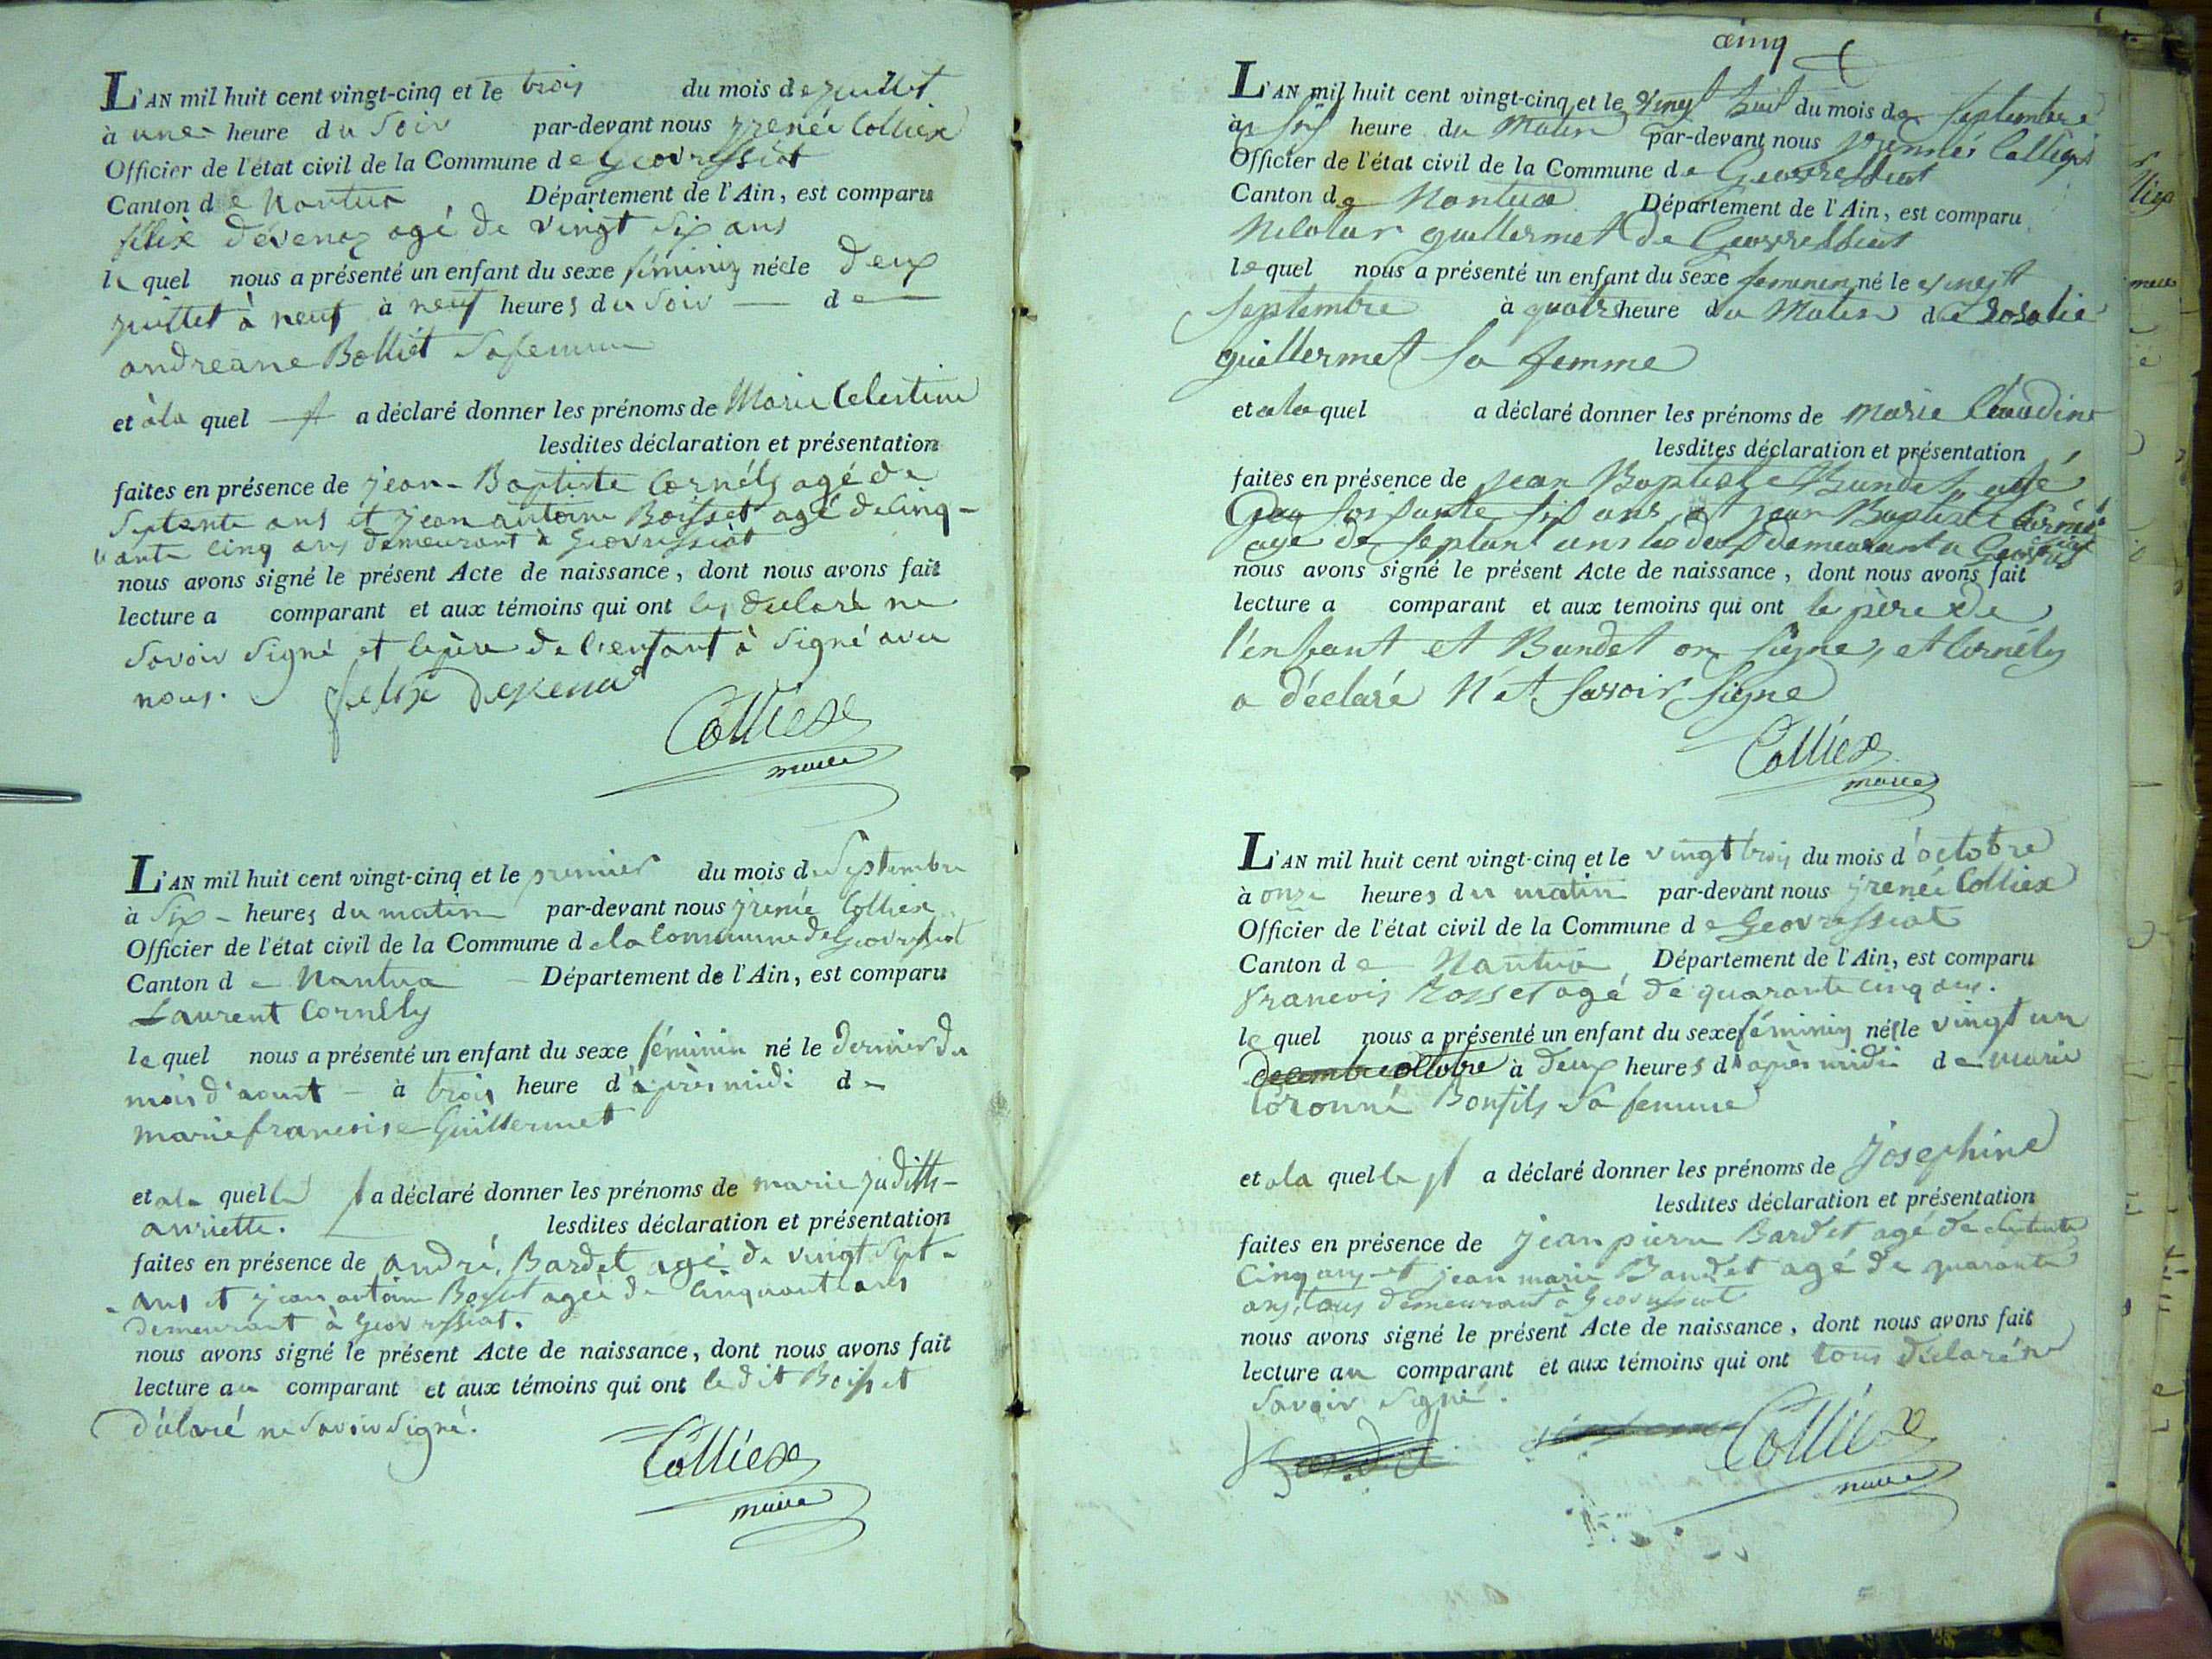 L'AN mil huit cent vingt-cinq et le trois du mois de juillet
à une heure du Soir par-devant nous jrenée Colliex
Officier de l'état civil de la Commune de Geovressiat
Canton de Nantua Département de l'Ain, est comparu
félix dévenaz agé de vingt Six ans
le quel nous a présenté un enfant du sexe féminin née le deux
juillet à neuf à neuf heures du Soir — de —
andreane Bolliet Sa femme
et à la quel a déclaré donner les prénoms de Marie Celestine
lesdites déclaration et présentation
faites en présence de jean-Baptiste Cornély agé de
Septente ans et jean antoine Boisset agé de Cinq-
"ante Cinq ans demeurant à Geovressiat
nous avons signé le présent Acte de naissance, dont nous avons fait
lecture a comparant et aux témoins qui ont les déclaré ne
Savoir Signé et le père de l'enfant à Signé avec
nous. felix devena
Colliex
maire
L'AN mil huit cent vingt-cinq et le premier du mois de Septembre
à Six - heures du matin par-devant nous jrenée Colliex
Officier de l'état civil de la Commune de la Commune de Geovressiat
Canton de Nantua Département de l'Ain, est comparu
Laurent Cornély
le quel nous a présenté un enfant du sexe féminin né le dernier du
mois d'aout - à trois heure d'après midi de
marie francoise Guillermet
et a la quelle a déclaré donner les prénoms de marie judith-
anriette. lesdites déclaration et présentation
faites en présence de andré Bardet agé de vingt Sept-
ans et jean antoine Boisset agée de Cinquante ans
demeurant à Geovressiat.
nous avons signé le présent Acte de naissance, dont nous avons fait
lecture au comparant et aux témoins qui ont le dit Boisset
déclaré ne Savoir Signé.
Colliex
maire
cinq
L'AN mil huit cent vingt-cinq et le vingt huit du mois de Septembre
à heure du Matin par-devant nous jrennée Colliex
Officier de l'état civil de la Commune de Geovressiat
Canton de Nantua Département de l'Ain, est comparu
guillermet de Geovressiat
le quel nous a présenté un enfant du sexe femenin né le vingt
Septembre à quatre heure du Matin de Rosalie
guillermet Sa femme
et a la quel a déclaré donner les prénoms de Marie Claudine
lesdites déclaration et présentation
faites en présence de jean Baptiste Bandet agé
Soisante Six ans et jean Baptiste Cornély
agé de Septant ans les deux demeurant a Geovressiat
nous avons signé le présent Acte de naissance, dont nous avons fait
lecture a comparant et aux temoins qui ont le père de
l'enfant et Bandet on Signe, et Cornély
a déclaré N'et Savoir Signe
Colliex
maire
L'AN mil huit cent vingt-cinq et le vingt trois du mois d'octobre
à onze heures du matin par-devant nous jrenée Colliex
Officier de l'état civil de la Commune de Geovressiat
Canton de Nantua Département de l'Ain, est comparu
francois Rosset agé de quarante cinq ans.
le quel nous a présenté un enfant du sexe féminin née le vingt un
decembre octobre à deux heures d'après midi de marie
Coronné Bonfils Sa femme
et a la quelle a déclaré donner les prénoms de josephine
lesdites déclaration et présentation
faites en présence de jean pierre Bardet agé de Septente
Cinq ans et jean marie Bandet agé de quarante
ans, tous demeurant à Geovressiat
nous avons signé le présent Acte de naissance, dont nous avons fait
lecture au comparant et aux témoins qui ont tous déclaré ne
Savoir Signé.
Colliex
maire